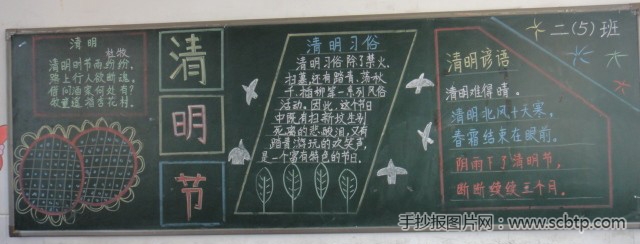 清明
杜牧
清明时节雨纷纷,
路上行人欲断魂。
借问酒家何处有?
牧童遥指杏花村。
清
明
节
清明习俗
清明习俗除了禁火、
扫墓,还有踏青、荡秋
千、插柳等一系列风俗
活动。因此,这个节日
中既有扫新坟生别
死离的悲酸泪,又有
踏青游玩的欢笑声,
是一个富有特色的节日。
二(5)班
清明谚语
清明难得晴。
清明北风十天寒,
春霜结束在眼前。
阴雨下了清明节,
断断续续三个月。
手抄报图片网:www.scbtp.com